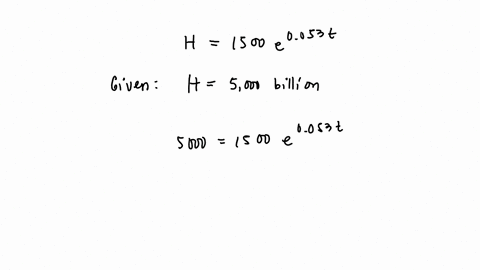 H = 1500 e^{0.053t}
Given: H = 5,000 billion
5000 = 1500 e^{0.053t}